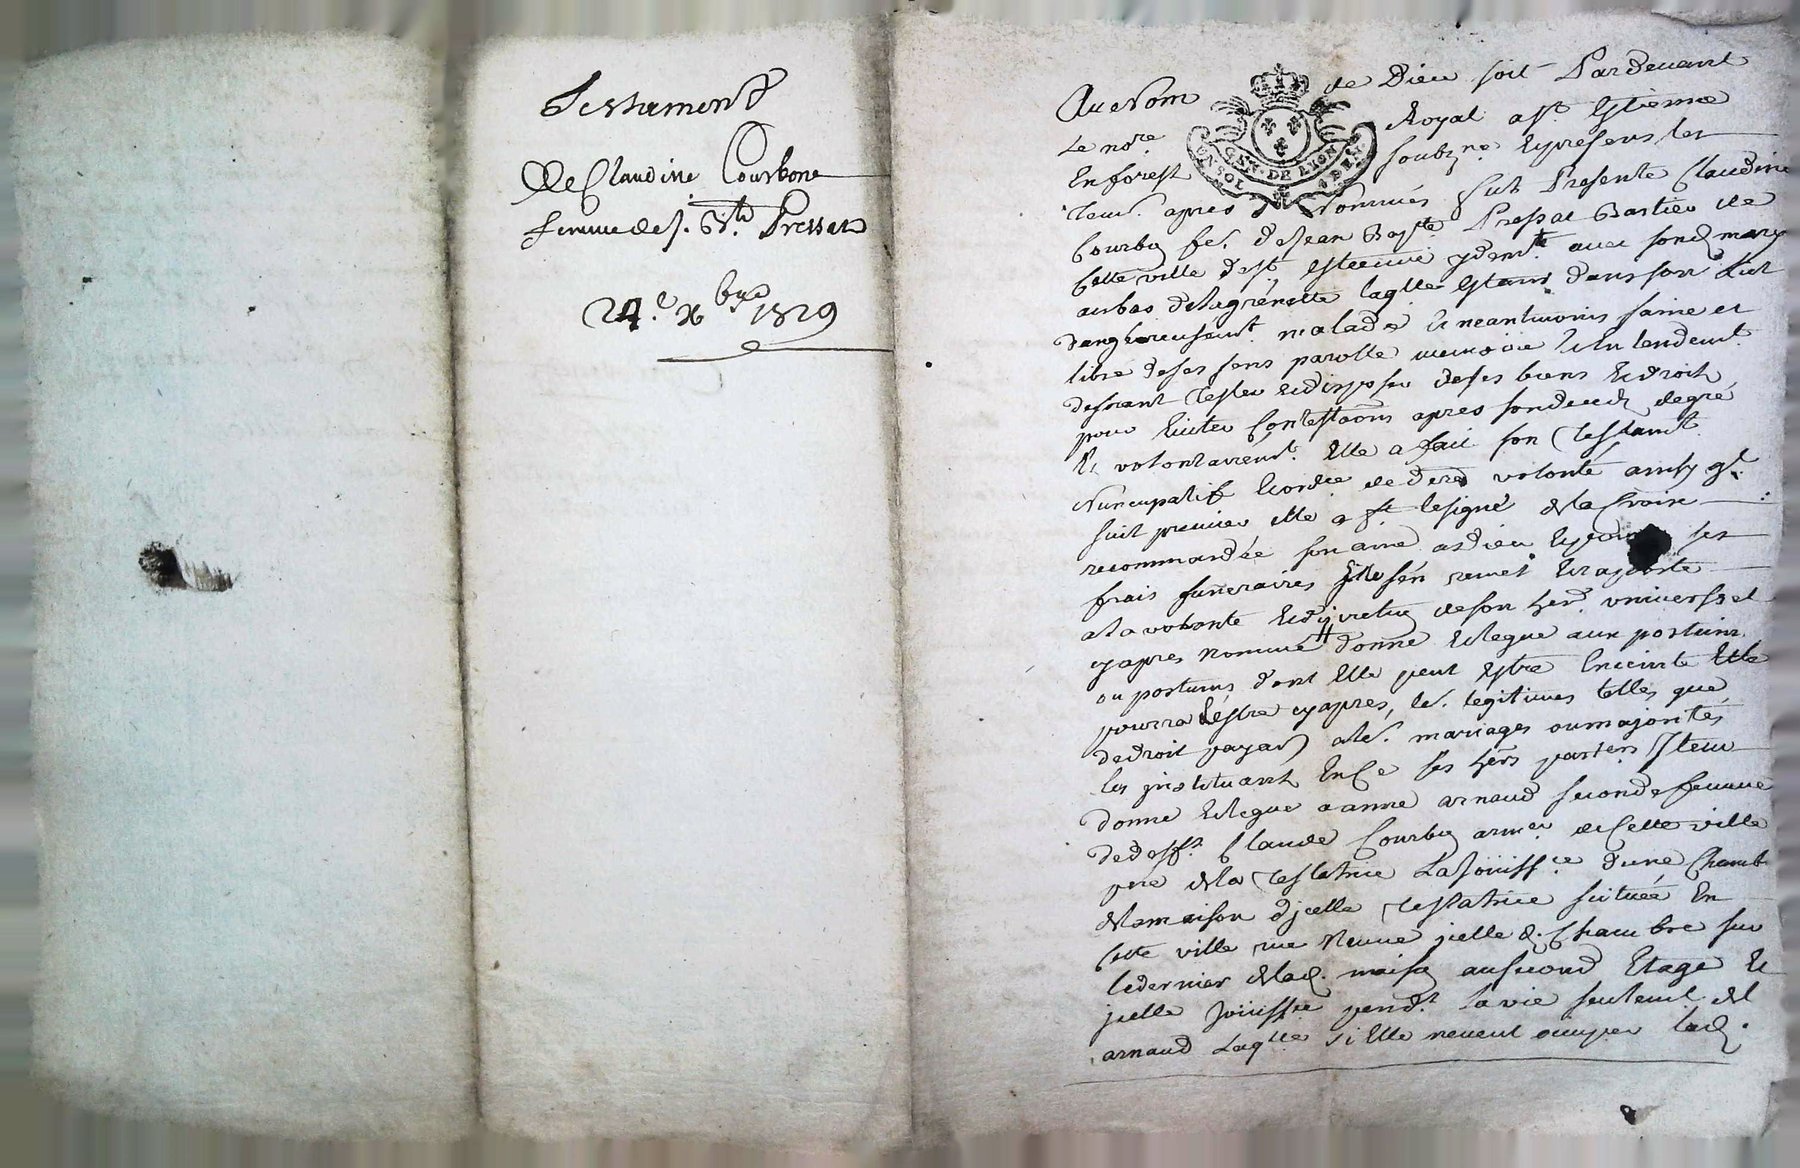 Testament
De Claudine Courbon
femme de J. Bte. Pressat
24.e Xbre 1729
Au Nom de Dieu soit Pardevant
Le nore Royal a St Estienne
En forest soubzne. Et presens les
tems. apres Nommés fut Presente Claudine
Courbon fe. de Jean Bapte. Pressat Bastier de
Cette ville de St. Estienne
au bas de la grenette laqlle Estant dans son Lict
dangereusemt. malade Et neantmoins saine et
libre de ses sens parolle memoire Et Entendemt.
desirant tester Et disposer de ses biens Et droits
pour Eviter Contestaons apres son deceds de gré
Et volontairemt. Elle a fait son testamt.
Nuncupatif Et ordce. de dere. volonté ainsy q.
suit premier elle a ft. le signe de la Croix
recommandée son ame a Dieu Et pour ses
frais funeraires Elle s'en remet Et raporte
a la volonte Et discretion de son herr. universsel
cyapres nommé donne Et legue aux postum
ou postums dont Elle peut Estre Enceinte Elle
pourra l'estre cyapres, le. legitimes telles que
de droit payab a le. mariages ou majorités
les jnstituant En Ce ses hers parters Jtem
donne Et legue a anne arnaud seconde femme
de defft. Claude Courbon armer de Cette ville
pere de la testatrice La Jouissce. d'une Chamb
de la maison d'jcelle testatrice scituée En
Cette ville rue Neuve jcelle d. Chambre sur
le dernier de lad. maison au second Etage Et
jcelle Jouissce pendt. sa vie seulemt. de l
arnaud Laqlle si Elle ne veut occuper lad.
G.ON DE LYON
UN SOL 4 DEN.